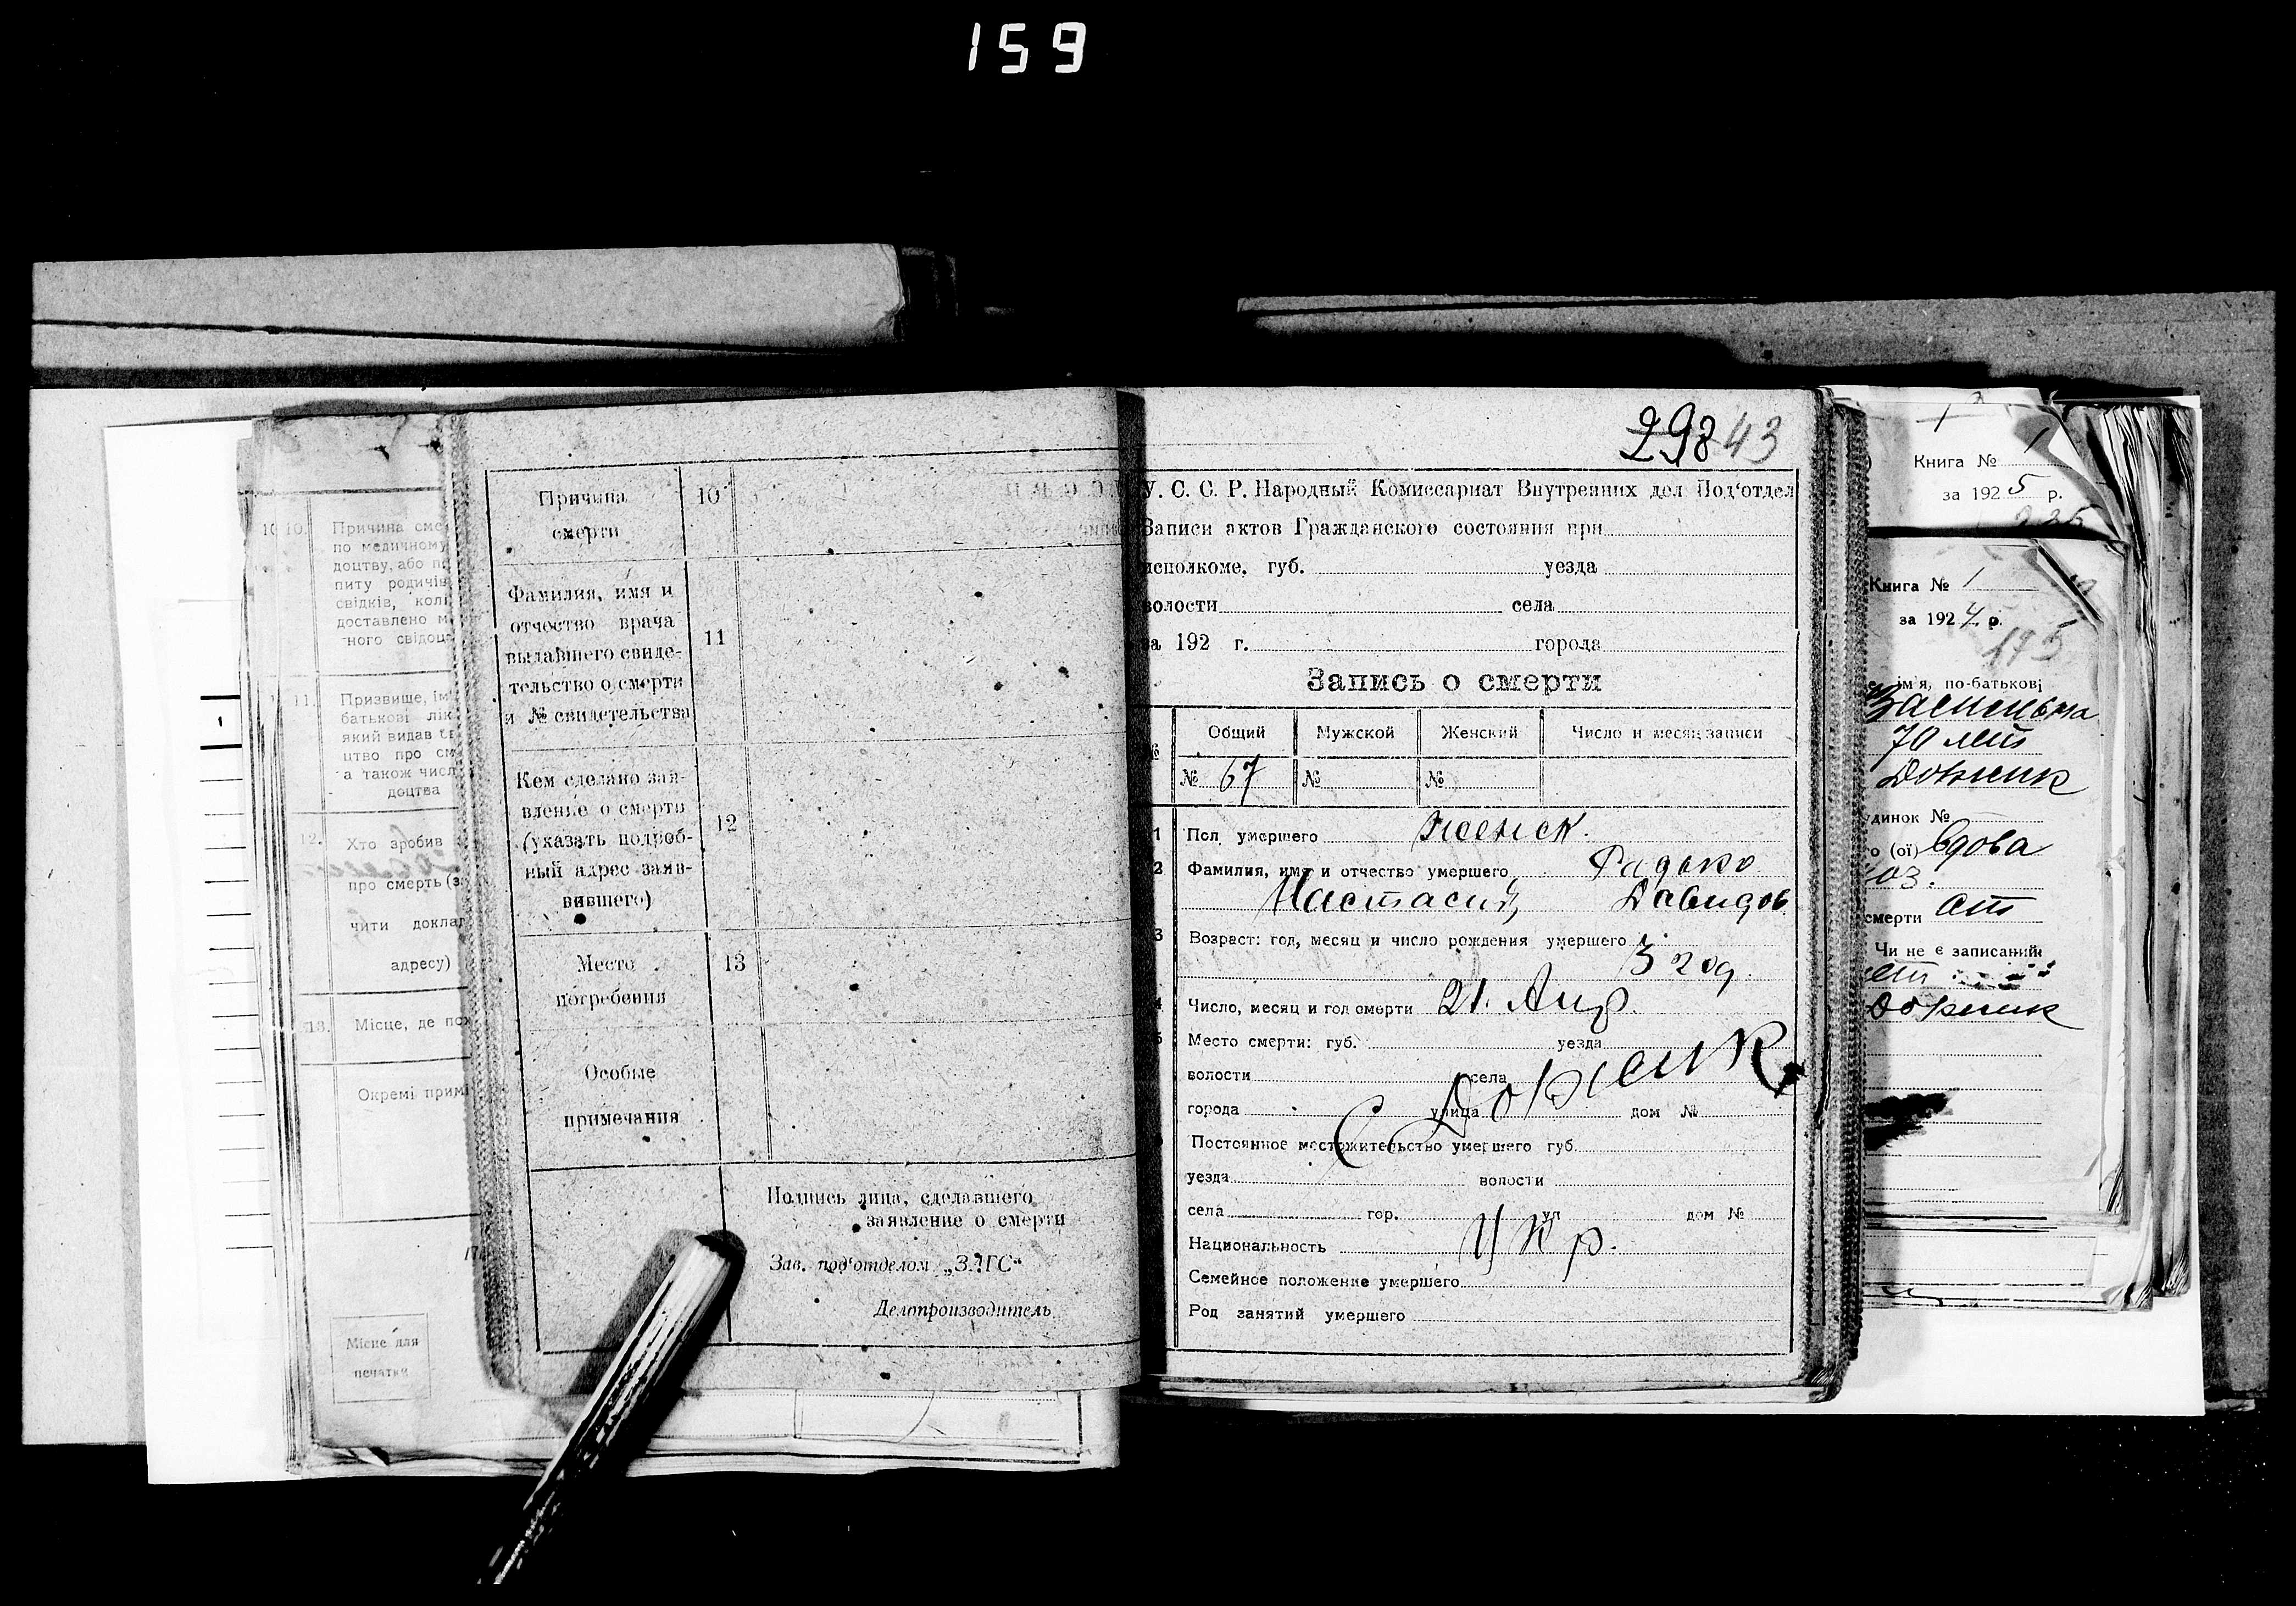 159
10 10. Причина сме
по медичному
доцтву, або п
питу родичів
свідків, кол
доставлено м
ного свідоц
11. Призвище, ім
батькові лік
який видав
цтво про см
а також числ
доцтва
12. Хто зробив
про смерть (з
чити доклад
адресу)
13. Місце, де по
Окремі примі
Місце для
печатки
Причина 10
смерти
Фамилия, имя и
отчество врача
выдавшего свиде- 11
тельство о смерти
и № свидетельства
Кем сделано зая-
вленье о смерти
(указать подроб- 12
ный адрес заяв-
вившего)
Место 13
погребения
Особые
примечания
Подпись лица, сделавшего
заявление о смерти
Зав. под'отделом „ЗАГС“
Делопроизводитель
298 43
У. С. С. Р. Народный Комиссариат Внутренних дел Под'отдел
Записи актов Гражданского состояния при
исполкоме, губ. уезда
волости села
за 192 г. города
Запись о смерти
Общий Мужской Женский Число и месяц записи
№ 67 № №
1 Пол умершего женск.
2 Фамилия, имя и отчество умершего Радько
Настасия Давидов
3 Возраст: год, месяц и число рождения умершего
3 год.
4 Число, месяц и год смерти 21. Апр.
5 Место смерти: губ. уезда
волости села
С Дожик
города улица дом №
Постоянное местожительство умершего губ.
уезда волости
села гор. ул дом №
Национальность Укр.
Семейное положение умершего
Род занятий умершего
Книга № 1
за 1925 р.
Книга № 1
за 1924 р.
195
ім'я, по-батькові
70 лет
динок №
о (ої) вдова
смерти
Чи не є записаний